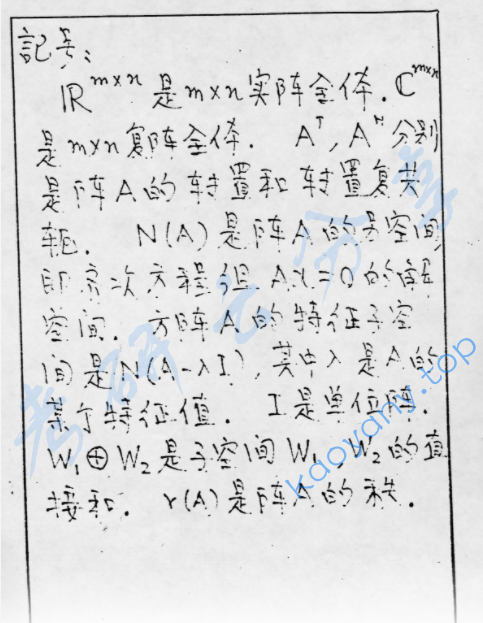 記号：
ℝ^{m×n} 是m×n实阵全体．ℂ^{m×n}
是m×n复阵全体． A^T，A^H 分别
是阵A的转置和转置复共
轭． N(A)是阵A的零空间
即齐次方程组 Ax=0的解
空间． 方阵A的特征子空
间是N(A-λI)，其中λ是A的
某个特征值． I是单位阵．
W₁⊕W₂是子空间W₁，W₂的直
接和． r(A)是阵A的秩．
考研云分享
kaoyany.top